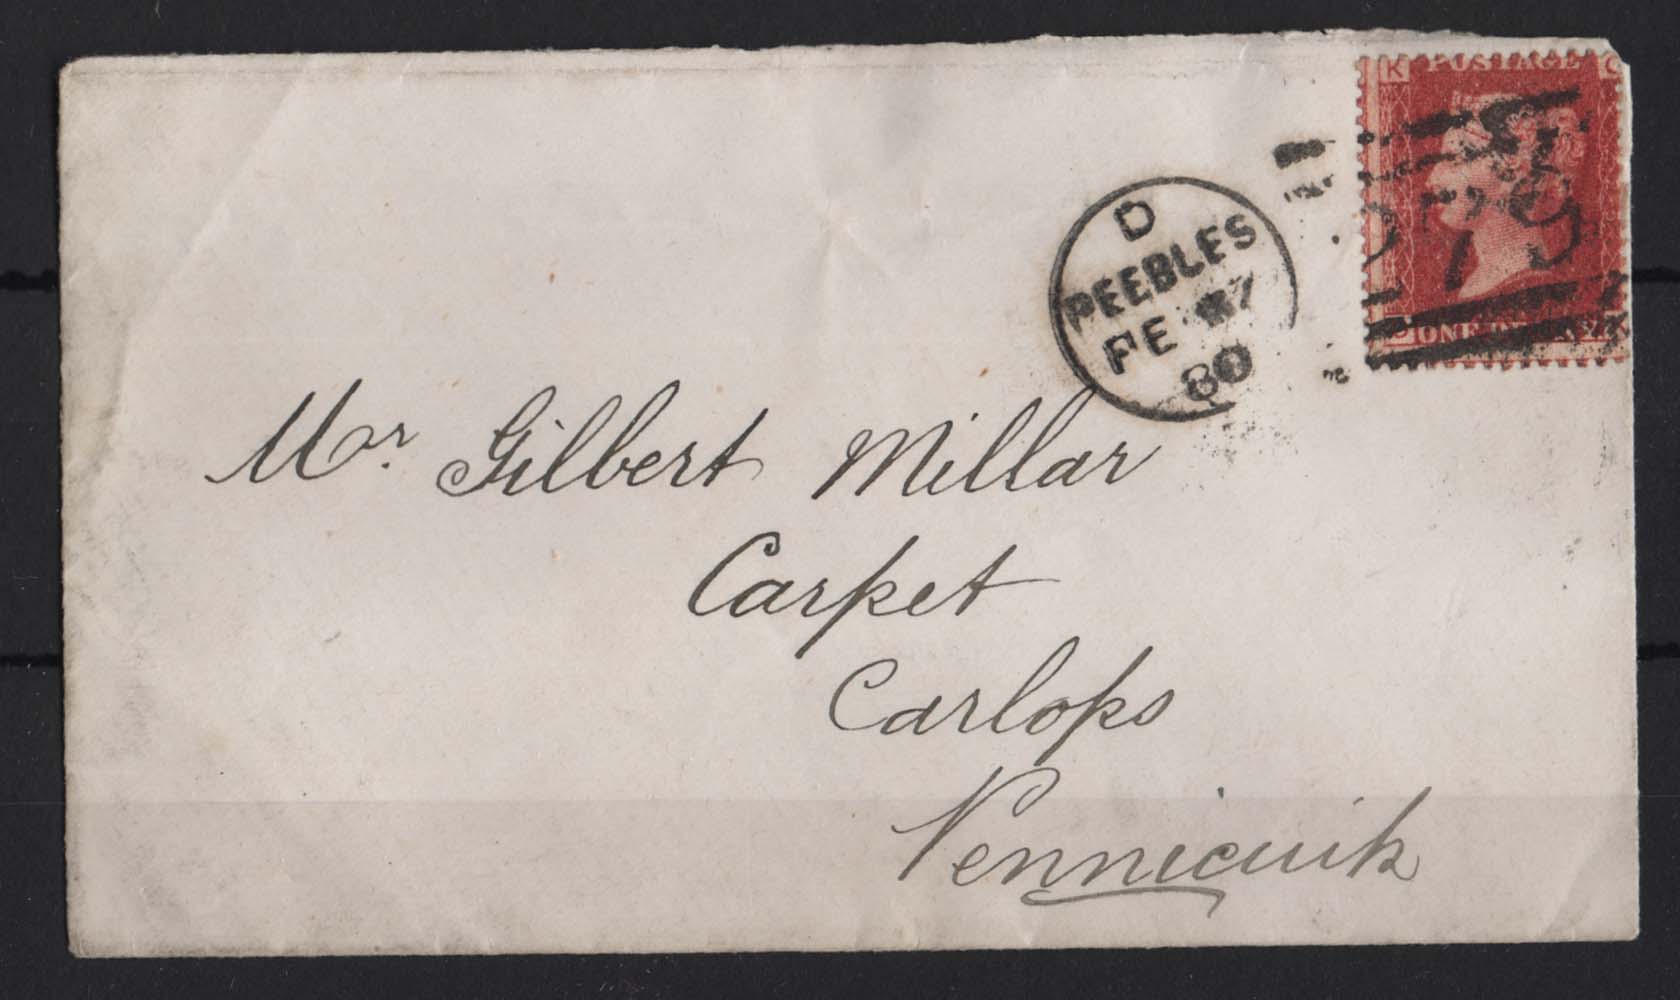 K POSTAGE G
D
PEEBLES
FE 27
80
G ONE PENNY K
Mr. Gilbert Millar
Carpet
Carlops
Pennicuik